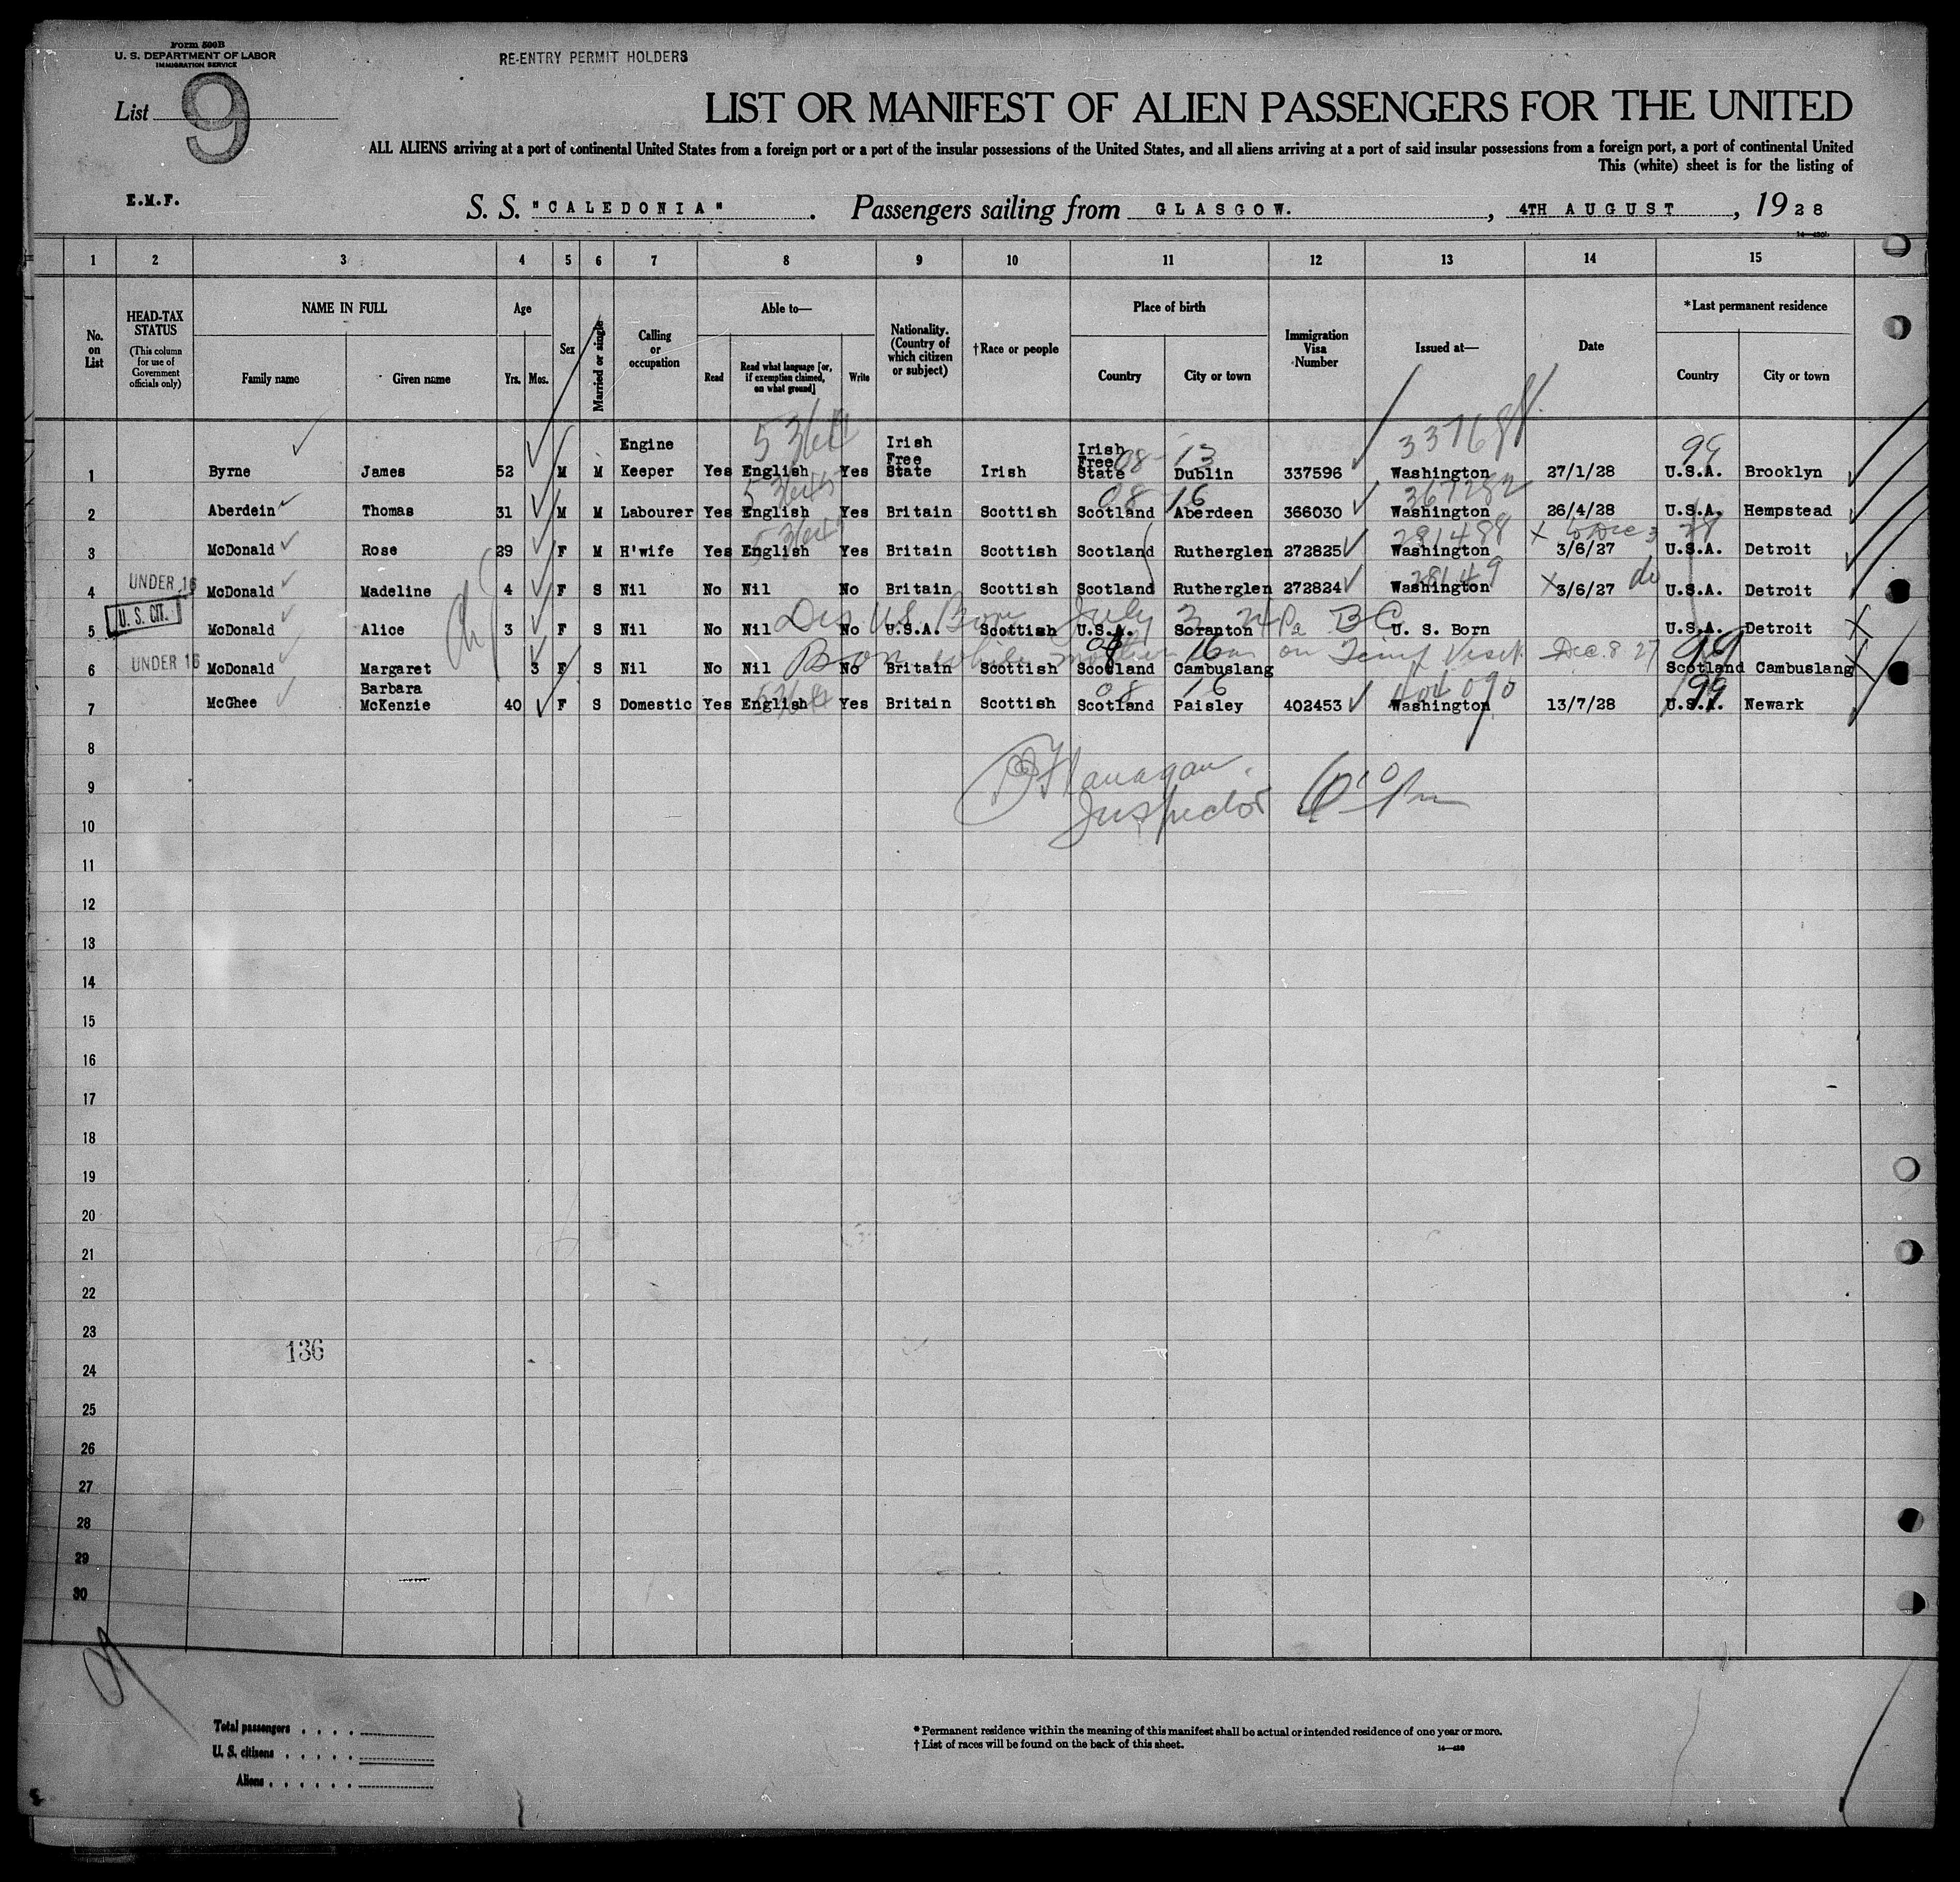 Form 500B
U. S. DEPARTMENT OF LABOR
IMMIGRATION SERVICE
RE-ENTRY PERMIT HOLDERS
List 9
LIST OR MANIFEST OF ALIEN PASSENGERS FOR THE UNITED
ALL ALIENS arriving at a port of continental United States from a foreign port or a port of the insular possessions of the United States, and all aliens arriving at a port of said insular possessions from a foreign port, a port of continental United
This (white) sheet is for the listing of
E.M.F.
S. S. "CALEDONIA". Passengers sailing from GLASGOW., 4TH AUGUST, 1928
1 2 3 4 5 6 7 8 9 10 11 12 13 14 15
No. on List
HEAD-TAX STATUS (This column for use of Government officials only)
NAME IN FULL
Family name Given name
Age
Yrs. Mos.
Sex
Married or single
Calling or occupation
Able to—
Read
Read what language [or, if exemption claimed, on what ground]
Write
Nationality. (Country of which citizen or subject)
†Race or people
Place of birth
Country City or town
Immigration Visa Number
Issued at—
Date
*Last permanent residence
Country City or town
1 Byrne James 52 M M Engine Keeper Yes English Yes Irish Free State Irish Irish Free State Dublin 337596 Washington 27/1/28 U.S.A. Brooklyn
08-13 99
2 Aberdein Thomas 31 M M Labourer Yes English Yes Britain Scottish Scotland Aberdeen 366030 Washington 26/4/28 U.S.A. Hempstead
08 16 367282
3 McDonald Rose 29 F M H'wife Yes English Yes Britain Scottish Scotland Rutherglen 272825 Washington 3/6/27 U.S.A. Detroit
281488
UNDER 16
4 McDonald Madeline 4 F S Nil No Nil No Britain Scottish Scotland Rutherglen 272824 Washington 3/6/27 U.S.A. Detroit
do
U. S. CIT.
5 McDonald Alice 3 F S Nil No Nil No U.S.A. Scottish U.S.A. Scranton U. S. Born U.S.A. Detroit
U.S. Born July 3 24 Pa BC
UNDER 16
6 McDonald Margaret 3 F S Nil No Nil No Britain Scottish Scotland Cambuslang Scotland Cambuslang
Born while mother was on Temp Visit Dec. 8 27
08 16 99
7 McGhee Barbara McKenzie 40 F S Domestic Yes English Yes Britain Scottish Scotland Paisley 402453 Washington 13/7/28 U.S.A. Newark
08 16 404090 99
8
Flanagan
9
Inspector
10
11
12
13
14
15
16
17
18
19
20
21
22
23
136
24
25
26
27
28
29
30
9
Total passengers . . . .
U. S. citizens . . . . .
Aliens . . . . . .
* Permanent residence within the meaning of this manifest shall be actual or intended residence of one year or more.
† List of races will be found on the back of this sheet.